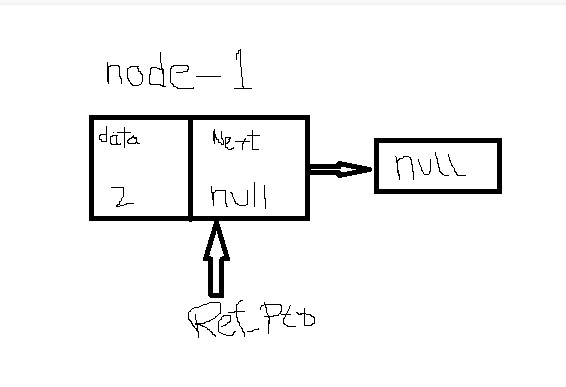 node-1
data Next
2 null
null
Ref_Ptr